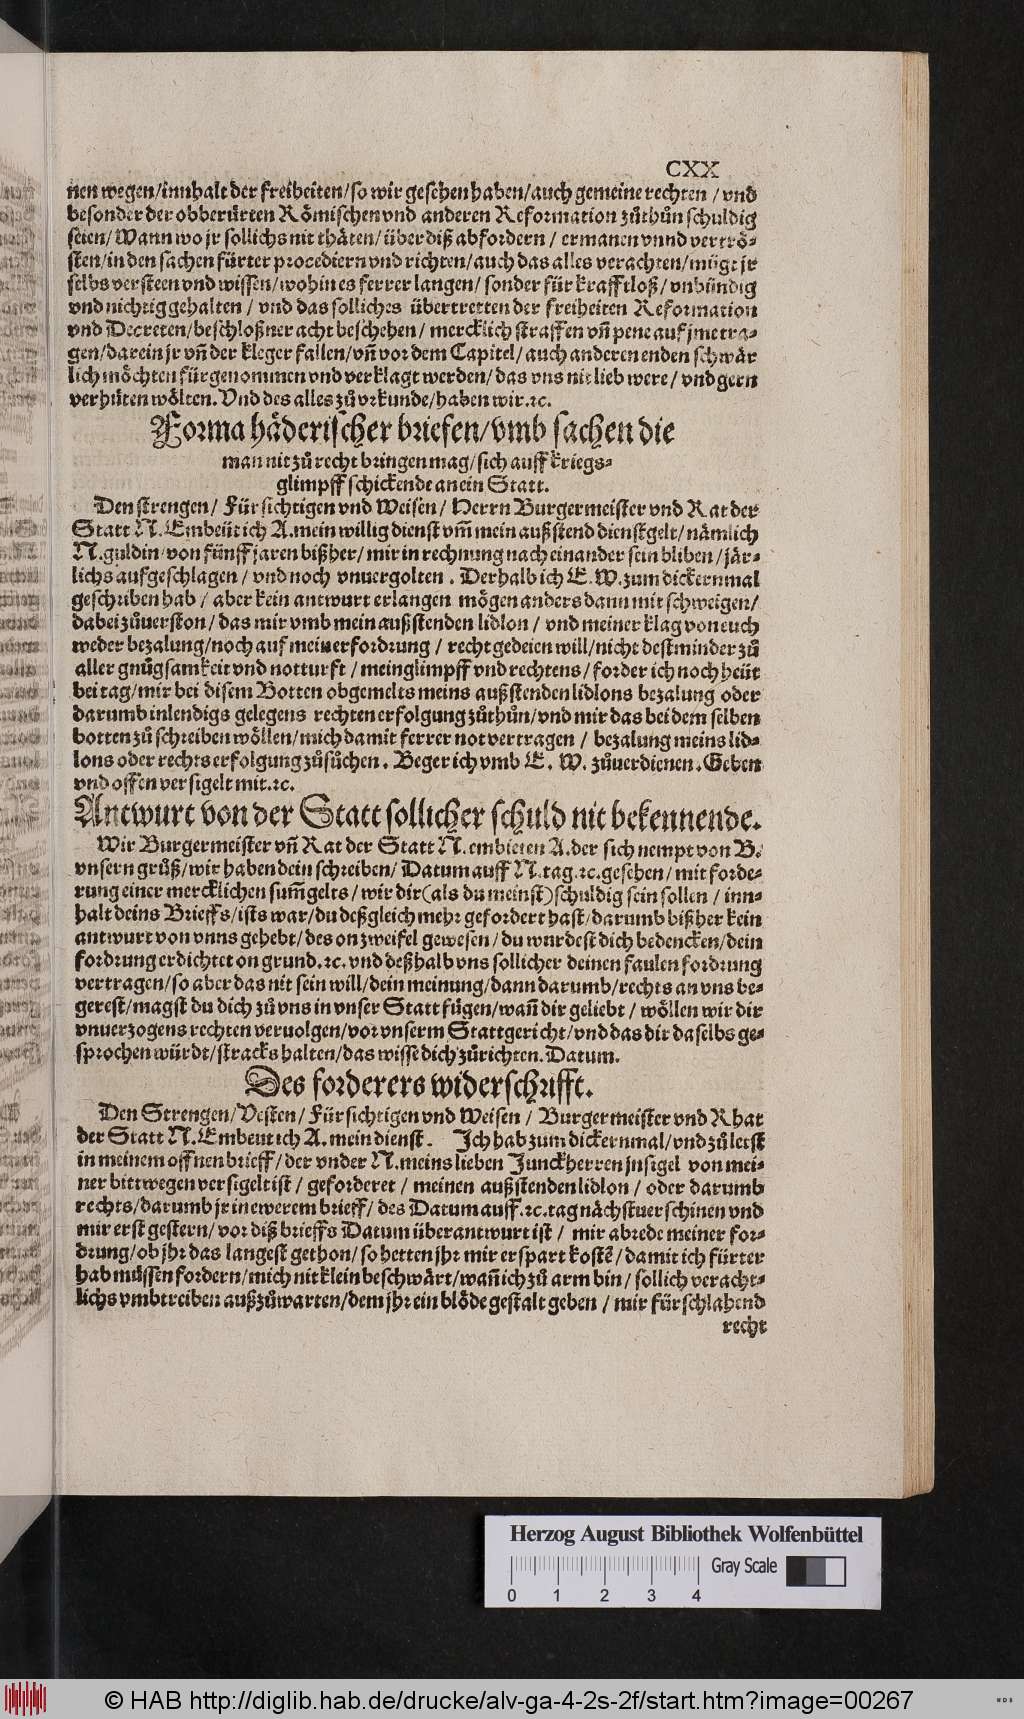 CXX
nen wegen/innhalt der freiheiten/so wir gesehen haben/auch gemeine rechten / vnd
besonder der obberuͤrten Roͤmischen vnd anderen Reformation zůthůn schuldig
seien/Wann wo jr sollichs nit thaͤten/ uͤber diß abfordern / ermanen vnnd vertroͤ⸗
sten/in den sachen fuͤrter procediern vnd richten/auch das alles verachten/muͤgt jr
selbs versteen vnd wissen/wohin es ferrer langen/ sonder fuͤr krafftloß / vnbuͤndig
vnd nichtig gehalten / vnd das solliches uͤbertretten der freiheiten Reformation
vnd Decreten/beschloßner acht beschehen/ mercklich straffen vñ pene auf jme tra⸗
gen/darein jr vñ der kleger fallen/vñ vor dem Capitel/auch anderen enden schwaͤr
lich moͤchten fuͤrgenommen vnd verklagt werden/ das vns nit lieb were / vnd gern
verhuͤten woͤlten. Vnd des alles zů vrkunde/haben wir.ꝛc.
Forma haͤderischer briefen/vmb sachen die
man nit zů recht bringen mag/sich auff kriegs⸗
glimpff schickende an ein Statt.
Den strengen/ Fuͤrsichtigen vnd Weisen/ Herrn Burgermeister vnd Rat der
Statt N. Embeüt ich A.mein willig dienst vm̃ mein außstend dienstgelt/naͤmlich
N.guldin von fünff jaren bißher/mir in rechnung nach einander sein bliben/jaͤr⸗
lichs aufgeschlagen / vnd noch vnuergolten . Derhalb ich E.W.zum dickernmal
geschriben hab / aber kein antwurt erlangen moͤgen anders dann mit schweigen/
dabei zůuerston/das mir vmb mein außstenden lidlon / vnd meiner klag von euch
weder bezalung/noch auf mein erfordrung / recht gedeien will/nicht destminder zů
aller gnůgsamkeit vnd notturft / mein glimpff vnd rechtens/forder ich noch heüt
bei tag/mir bei disem Botten obgemelts meins außstenden lidlons bezalung oder
darumb inlendigs gelegens rechten erfolgung zůthůn/vnd mir das bei dem selben
botten zů schreiben woͤllen/mich damit ferrer not vertragen / bezalung meins lid⸗
lons oder rechts erfolgung zůsůchen. Beger ich vmb E. W. zůuerdienen. Geben
vnd offen versigelt mit.ꝛc.
Antwurt von der Statt sollicher schuld nit bekennende.
Wir Burgermeister vñ Rat der Statt N.embieten A.der sich nempt von B.
vnsern grůß/wir haben dein schreiben/ Datum auff N.tag.ꝛc.gesehen/mit forde⸗
rung einer mercklichen sum̃ gelts/wir dir(als du meinst)schuldig sein sollen / inn⸗
halt deins Brieffs/ists war/du deßgleich mehr gefordert hast/darumb bißher kein
antwurt von vnns gehebt/des on zweifel gewesen/du wurdest dich bedencken/dein
fordrung erdichtet on grund.ꝛc.vnd deßhalb vns sollicher deinen faulen fordrung
vertragen/so aber das nit sein will/dein meinung/dann darumb/rechts an vns be⸗
gerest/magst du dich zů vns in vnser Statt fuͤgen/wañ dir geliebt / woͤllen wir dir
vnuerzogens rechten veruolgen/vor vnserm Stattgericht/vnd das dir daselbs ge⸗
sprochen würdt/stracks halten/das wisse dich zůrichten. Datum.
Des forderers widerschrifft.
Den Strengen/Vesten/ Fuͤrsichtigen vnd Weisen / Burgermeister vnd Rhat
der Statt N. Embeut ich A.mein dienst. Ich hab zum dickernmal/vnd zů letst
in meinem offnen brieff/der vnder N.meins lieben Junckherren jnsigel von mei⸗
ner bitt wegen versigelt ist / gefordert / meinen außstenden lidlon / oder darumb
rechts/darumb jr in ewerem brieff/ des Datum auff.ꝛc.tag naͤchstuerschinen vnd
mir erst gestern/vor diß brieffs Datum uͤberantwurt ist / mir abrede meiner for⸗
drung/ob jhr das langest gethon/so hetten jhr mir erspart kostẽ/damit ich fuͤrter
hab muͤssen fordern/mich nit klein beschwaͤrt/wañ ich zů arm bin/sollich veracht⸗
lichs vmbtreiben außzůwarten/dem jhr ein bloͤde gestalt geben / mir fuͤrschlahend
recht
Herzog August Bibliothek Wolfenbüttel
Gray Scale
0 1 2 3 4
© HAB http://diglib.hab.de/drucke/alv-ga-4-2s-2f/start.htm?image=00267